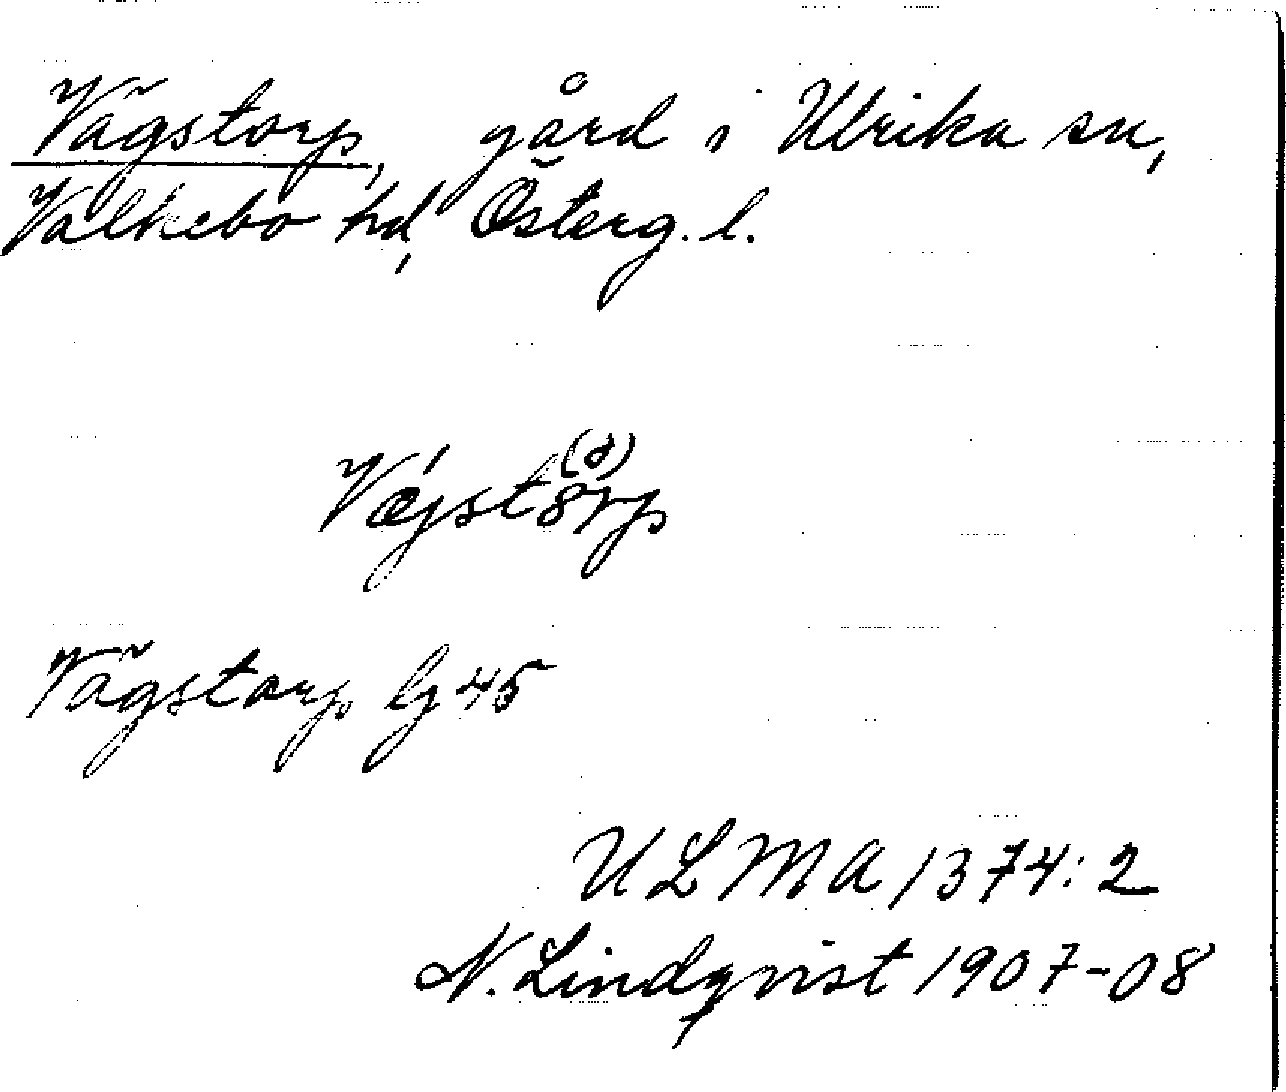 Vägstorp, gård i Ulrika sn,
Valkebo hd, Österg. l.
(d)
Vǽjstȣrp
Vägstorp lj 45
ULMA 1374:2
N. Lindqvist 1907-08